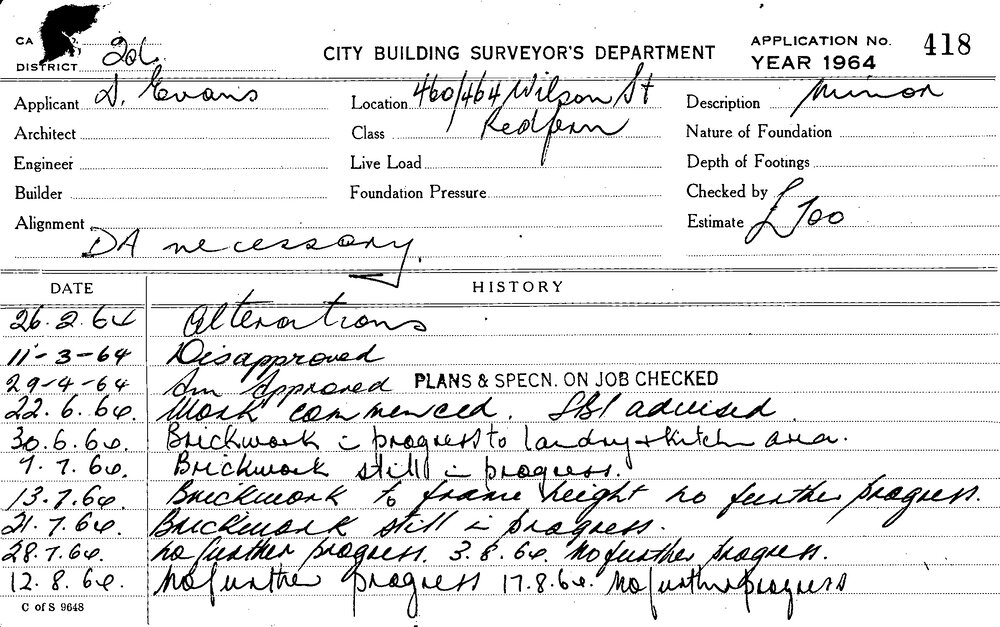 CITY BUILDING SURVEYOR'S DEPARTMENT
APPLICATION No. 418
YEAR 1964
CA
DISTRICT 2d.
Applicant D. Evans
Location 460/464 Wilson St
Description Minor
Architect
Class Redfern
Nature of Foundation
Engineer
Live Load
Depth of Footings
Builder
Foundation Pressure
Checked by
Alignment
Estimate £700
DA necessary.
DATE HISTORY
26.2.64 Alterations
11-3-64 Disapproved
29-4-64 Approved PLANS & SPECN. ON JOB CHECKED
22.6.64. Work commenced. advised
30.6.64. Brickwork in progress to laundry + kitchen area.
7.7.64. Brickwork still in progress.
13.7.64. Brickwork to frame height no further progress.
21.7.64. Brickwork still in progress.
28.7.64. no further progress. 3.8.64. No further progress.
12.8.64. No further progress 17.8.64. No further progress
C of S 9648